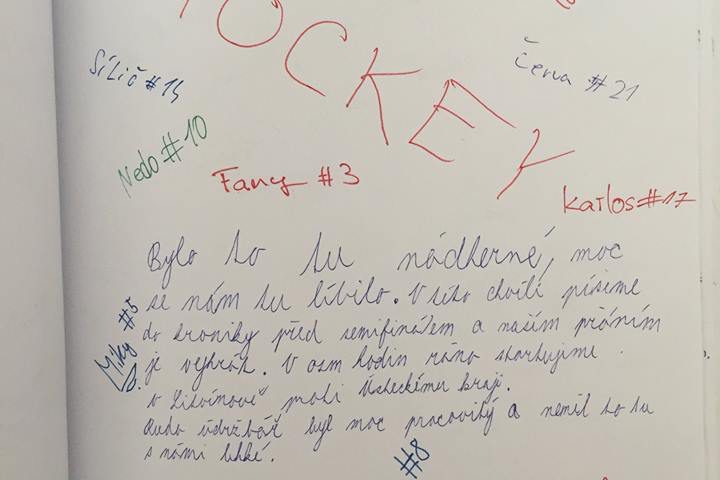 OCKEY
Sílič #14
Červa #21
Nedo #10
Fany #3
Karlos #17
Bylo to tu nádherné, moc
se nám tu líbilo. V této chvíli píšeme
do kroniky před semifinálem a naším přáním
je vyhrát. V osm hodin ráno startujeme
v Litvínově proti Ústeckému kraji.
údržbář byl moc pracovitý a neměl to tu
s námi lehké.
Miky #5
#8